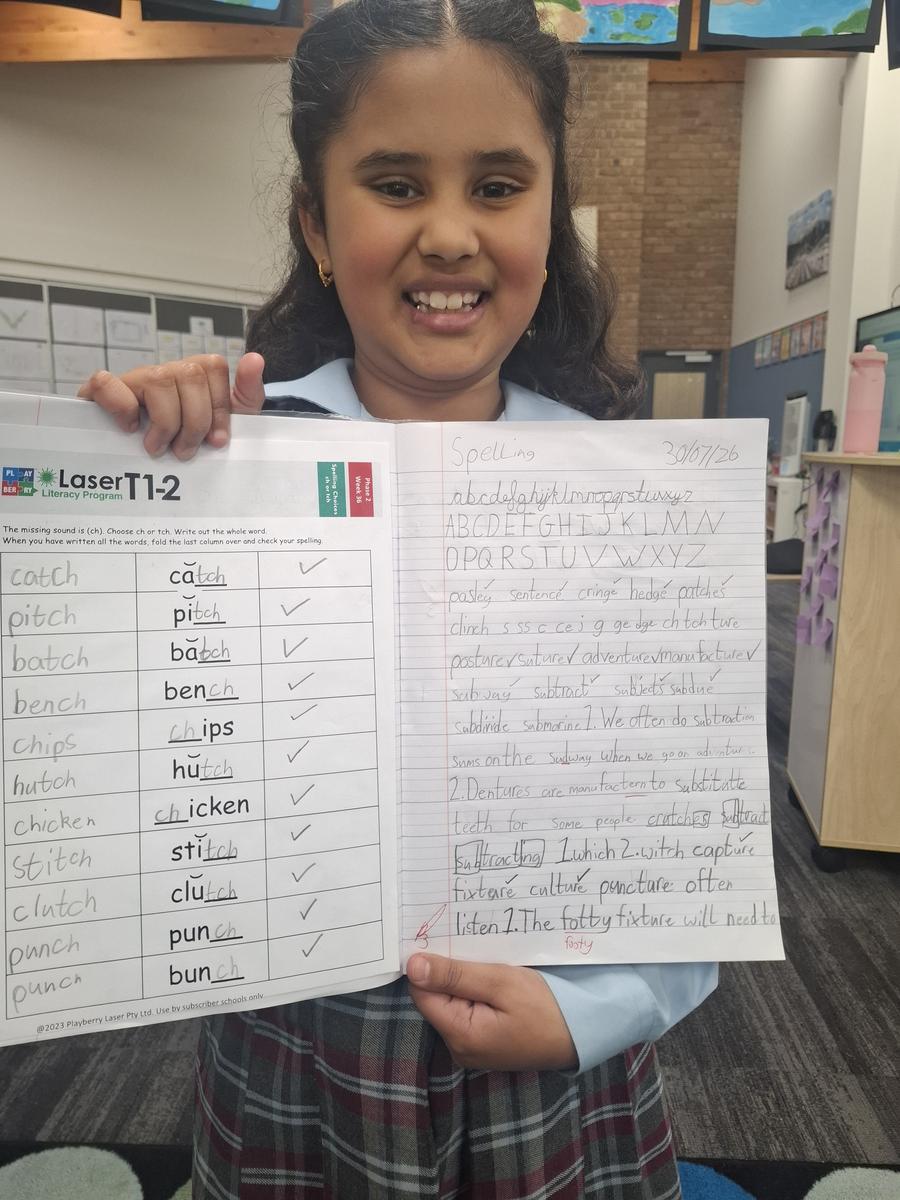 PL AY
BER RY
LaserT1-2
Literacy Program
Phase 2
Week 36
Spelling Choices
ch or tch
The missing sound is (ch). Choose ch or tch. Write out the whole word.
When you have written all the words, fold the last column over and check your spelling.
catch cătch ✓
pitch pĭtch ✓
batch bătch ✓
bench bench ✓
chips chips ✓
hutch hŭtch ✓
chicken chicken ✓
stitch stĭtch ✓
clutch clŭtch ✓
punch punch ✓
punch bunch ✓
@2023 Playberry Laser Pty Ltd. Use by subscriber schools only
Spelling 30/07/26
abcdefghijklmnopqrstuvwxyz
ABCDEFGHIJKLMN
OPQRSTUVWXYZ
sentence cringe hedge patches
clinch s ss c ce j g ge dge ch tch ture
posture✓ suture✓ adventure✓ manufacture✓
subway subtract subjects subdue
subdivide submarine 1. We often do subtraction
sums on the when we go on
2. Dentures are manufactern to substitutte
teeth for some people crutches subtract
subtracting 1.which 2.witch capture
fixture culture puncture often
listen 1. The fotty fixture will need to
footy